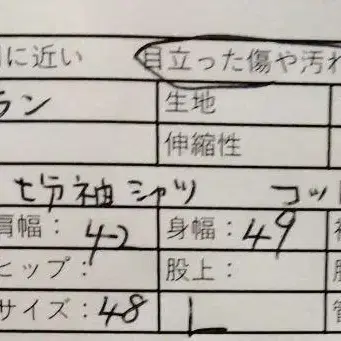 に近い 目立った傷や汚れ
ラン 生地
伸縮性
七分袖シャツ コット
肩幅： 42 身幅： 49
ヒップ： 股上：
サイズ： 48 L